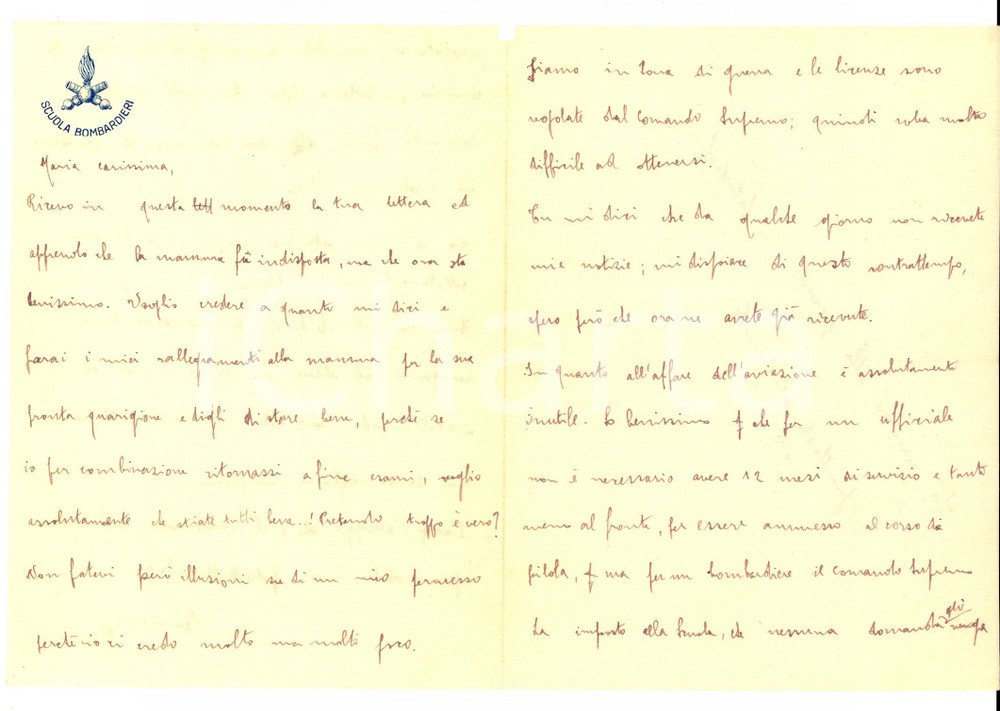 SCUOLA BOMBARDIERI
Maria carissima,
Ricevo in questa momento la tua lettera ed
apprendo che la mamma fù indisposta, ma che ora sta
benissimo. Voglio credere a quanto mi dici e
farai i miei rallegramenti alla mamma per la sua
pronta guarigione e digli di stare bene, perchè se
io per combinazione ritornassi a fine esami, voglio
assolutamente che stiate tutti bene...! Pretendo troppo è vero?
Non fatevi però illusioni su di un mio permesso
perchè io ci credo molto ma molto poco.
Siamo in zona di guerra e le licenze sono
regolate dal Comando Supremo; quindi roba molto
difficile ad ottenersi.
Tu mi dici che da qualche giorno non ricevete
mie notizie; mi dispiace di questo contrattempo,
spero però che ora ne avrete già ricevute.
In quanto all'affare dell'aviazione è assolutamente
inutile. So benissimo che per un ufficiale
non è necessario avere 12 mesi di servizio e tanto
meno al fronte, per essere ammesso al corso di
pilota, ma per un bombardiere il Comando Supremo
ha imposto alla Scuola, che nessuna domanda gli venga
iCharta